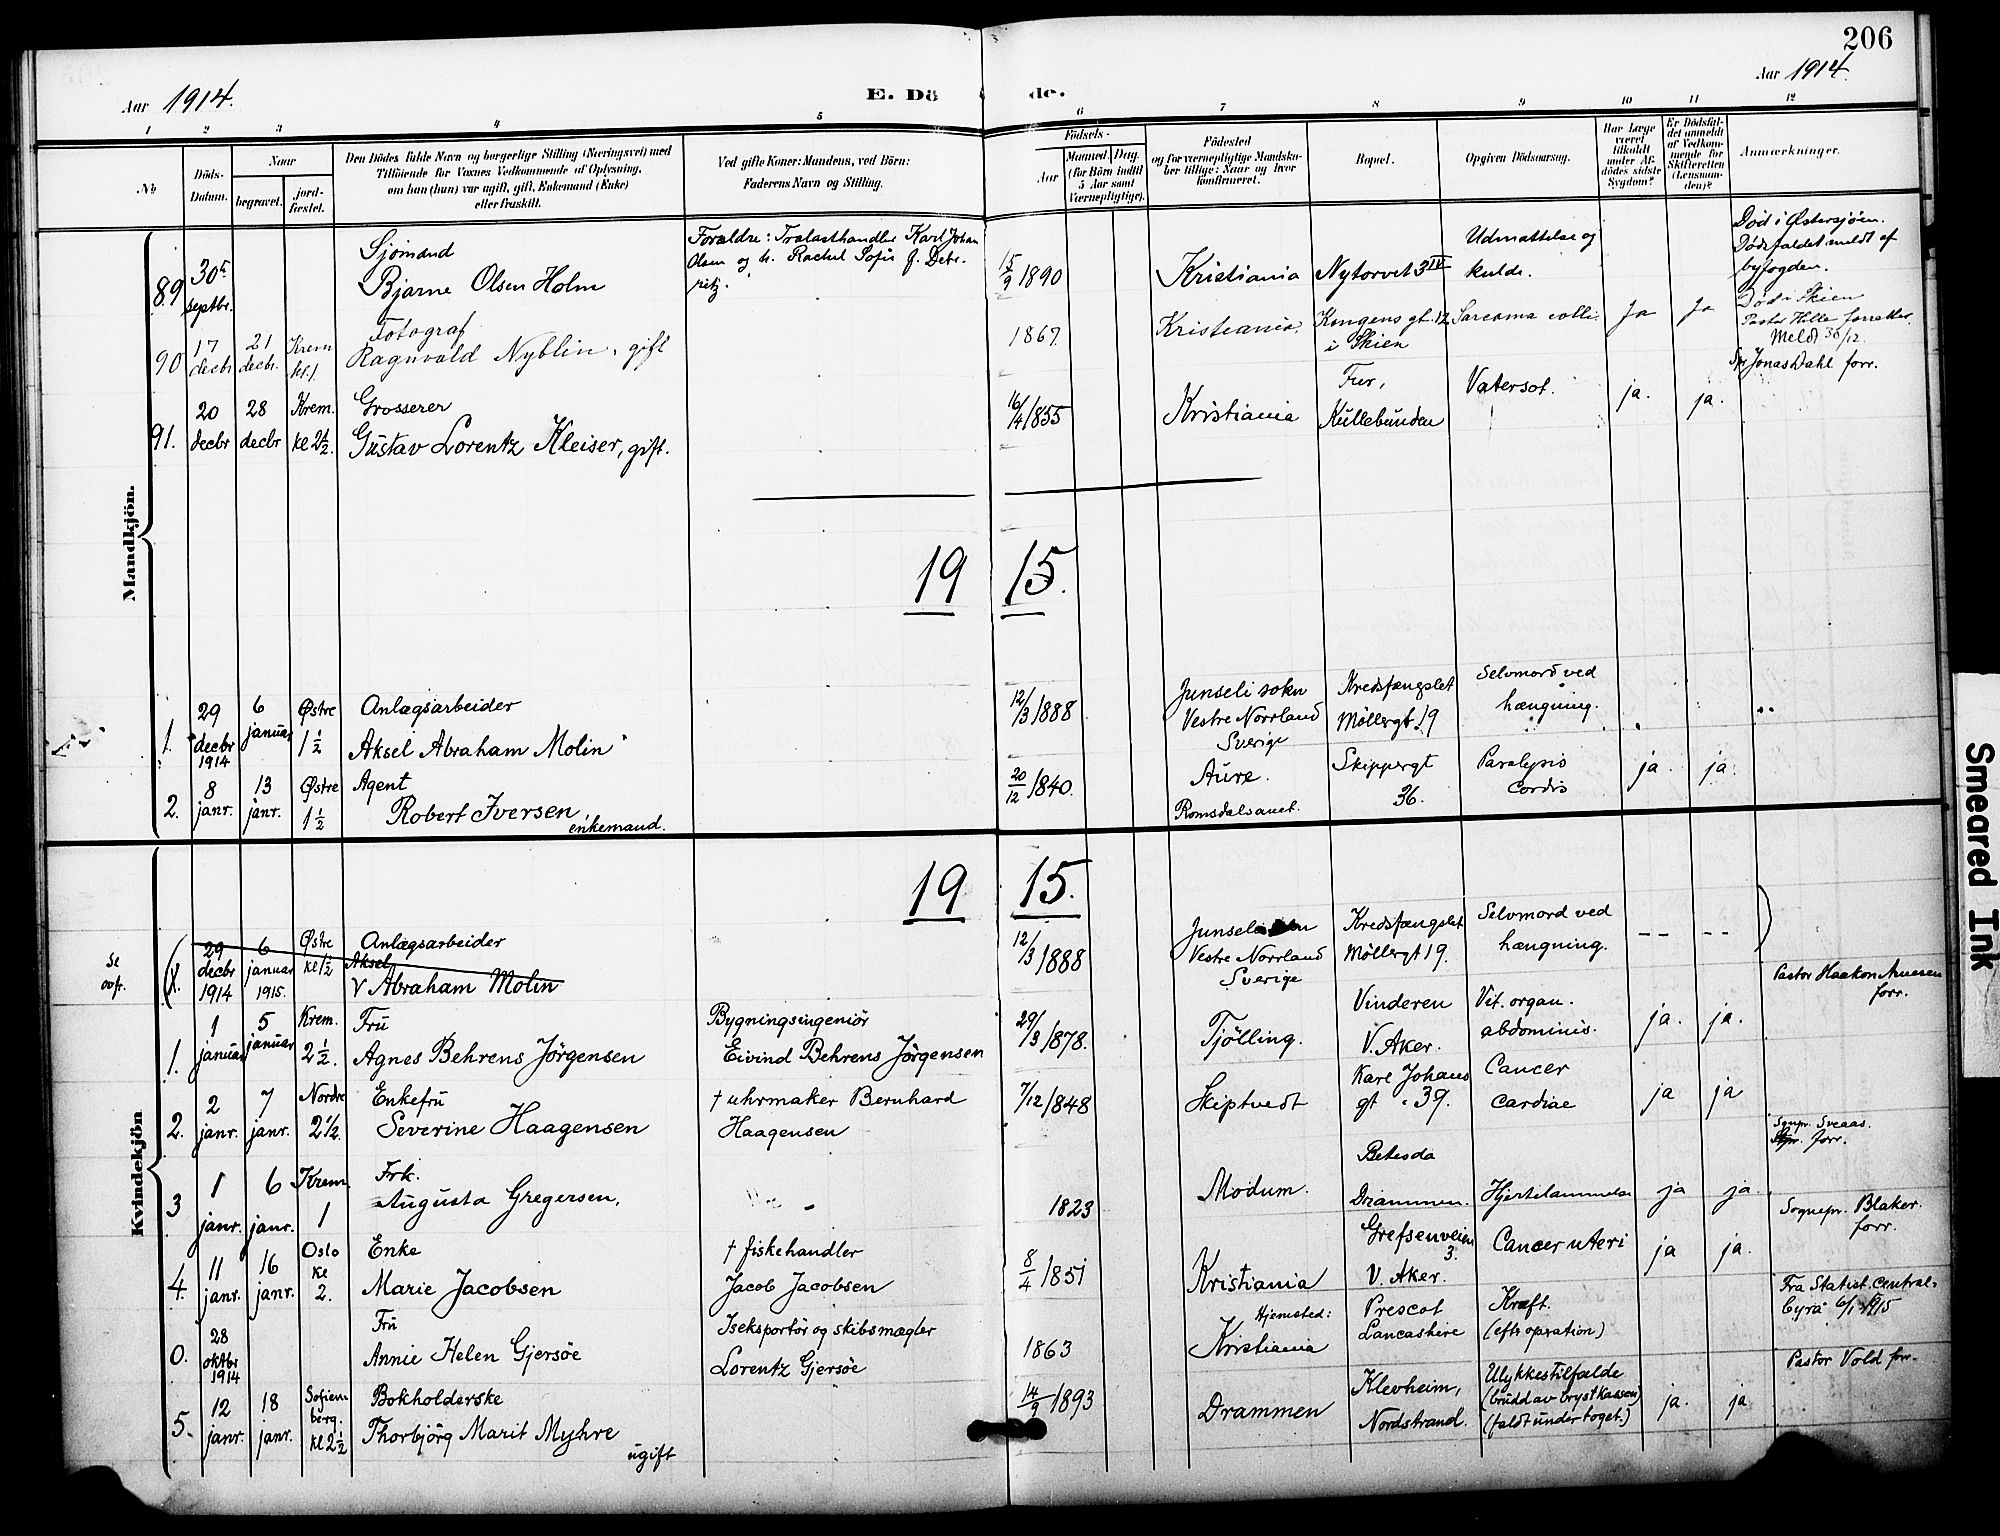 206
Aar 1914.
E. Dö de.
Aar 1914.
1 2 3 4 5 6 7 8 9 10 11 12
No
Döds-Datum.
Naar
begravet.
jord-fæstet.
Den Dödes fulde Navn og borgerlige Stilling (Næringsvei) med
Tilföiende for Voxnes Vedkommende af Oplysning,
om han (hun) var ugift, gift, Enkemand (Enke)
eller fraskilt.
Ved gifte Koner: Mandens, ved Börn:
Faderens Navn og Stilling.
Födsels-
Aar
Maaned. Dag.
(for Börn indtil
5 Aar samt
Værnepligtige).
Födested
og for værnepligtige Mandska-
ber tillige: Naar og hvor
konfirmeret.
Bopæl.
Opgiven Dödsaarsag.
Har Læge
været
tilkaldt
under Af-
dödes sidste
Sygdom?
Er Dödsfal-
det anmeldt
af Vedkom-
mende for
Skifteretten
(Lensman-
den)?
Anmærkninger.
Mandkjön.
89 30te septbr.
Sjömand
Bjarne Olsen Holm
Forældre: Trælasthandler Karl Johan
Olsen og h. Rachel Sofie f.
15/9 1890
Kristiania
Nytorvet 3 IV
Udmattelse og
kulde.
Död i Østersjøen.
Dödsfaldet meldt af
byfogden.
90 17 decbr. 21 decbr. Krem. kl. 1
Fotograf
Ragnvald Nyblin, gift
1867.
Kristiania.
Kongens gt. 12
i Skien
Sarcoma colli
Ja Ja
Död i Skien
Pastor Hille forretter.
Meldt 30/12.
91. 20 decbr 28 decbr Krem. kl 2 1/2.
Grosserer
Gustav Lorentz Kleiser, gift.
16/4 1855
Kristiania
Fur,
Kullebunden
Vatersot.
ja. ja.
Spr Jonas Dahl forr.
19 15.
1. 29 decbr 1914 6 januar Østre 1 1/2
Anlægsarbeider
Aksel Abraham Molin
12/3 1888
Junseli sokn
Vestre Norrland
Sverige
Kredsfængslet
Møllergt 19
Selvmord ved
hængning.
2. 8 janr. 13 janr. Østre 1 1/2
Agent
Robert Iversen, enkemand.
20/12 1840.
Aure.
Romsdalsamt.
Skippergt
36.
Paralysis
cordis
ja. ja.
Kvindekjön
19 15.
se
ovfr.
(X. 29 decbr 1914 6 januar 1915. Østre kl 1 1/2
Anlægsarbeider
Aksel
V Abraham Molin
12/3 1888
Vestre Norrland
Sverige
Kredsfængslet
Møllergt 19.
Selvmord ved
hængning.
-- --
1. 1 januar 5 januar Krem. 2 1/2.
Fru
Agnes Behrens Jörgensen
Bygningsingeniör
Eivind Behrens Jörgensen
29/3 1878.
Tjölling.
Vinderen
V. Aker.
Vit. organ.
abdominis.
ja. ja.
Pastor Haakon
forr.
2. 2 janr. 7 janr. Nordre 2 1/2.
Enkefru
Severine Haagensen
† uhrmaker Bernhard
Haagensen
7/12 1848
Skiptvedt
Karl Johans
gt. 39.
Cancer
Cardiae
ja ja
3 1 janr. 6 janr. Krem. 1
Frk.
Augusta Gregersen,
1823
Modum.
Betesda
Drammen.
Hjertelammelse
ja ja.
Sognpr. Sveaas.
forr.
4. 11 janr. 16 janr. Oslo kl 2.
Enke
Marie Jacobsen
† fiskehandler
Jacob Jacobsen
8/4 1851
Kristiania
Grefsenveien
3.
V. Aker.
Cancer uteri
ja ja.
Sognepr. Blaker.
forr.
0. 28 oktbr 1914
Fru
Annie Helen Gjersöe
Iseksportör og skibsmægler
Lorentz Gjersöe
1863
Hjemsted:
Kristiania
Prescot
Lancashire
Kræft.
(eftr operation)
Fra Statist. central-
byrå 6/1 1915
5. 12 janr. 18 janr. Sofienberg. kl 2 1/2
Bokholderske
Thorbjörg Marit Myhre
ugift
14/9 1893
Drammen
Klevheim,
Nordstrand.
Ulykkestilfælde
(brudd av brystkassen)
(faldt under toget.)
ja. ja
Pastor Vold forr.
Smeared Ink